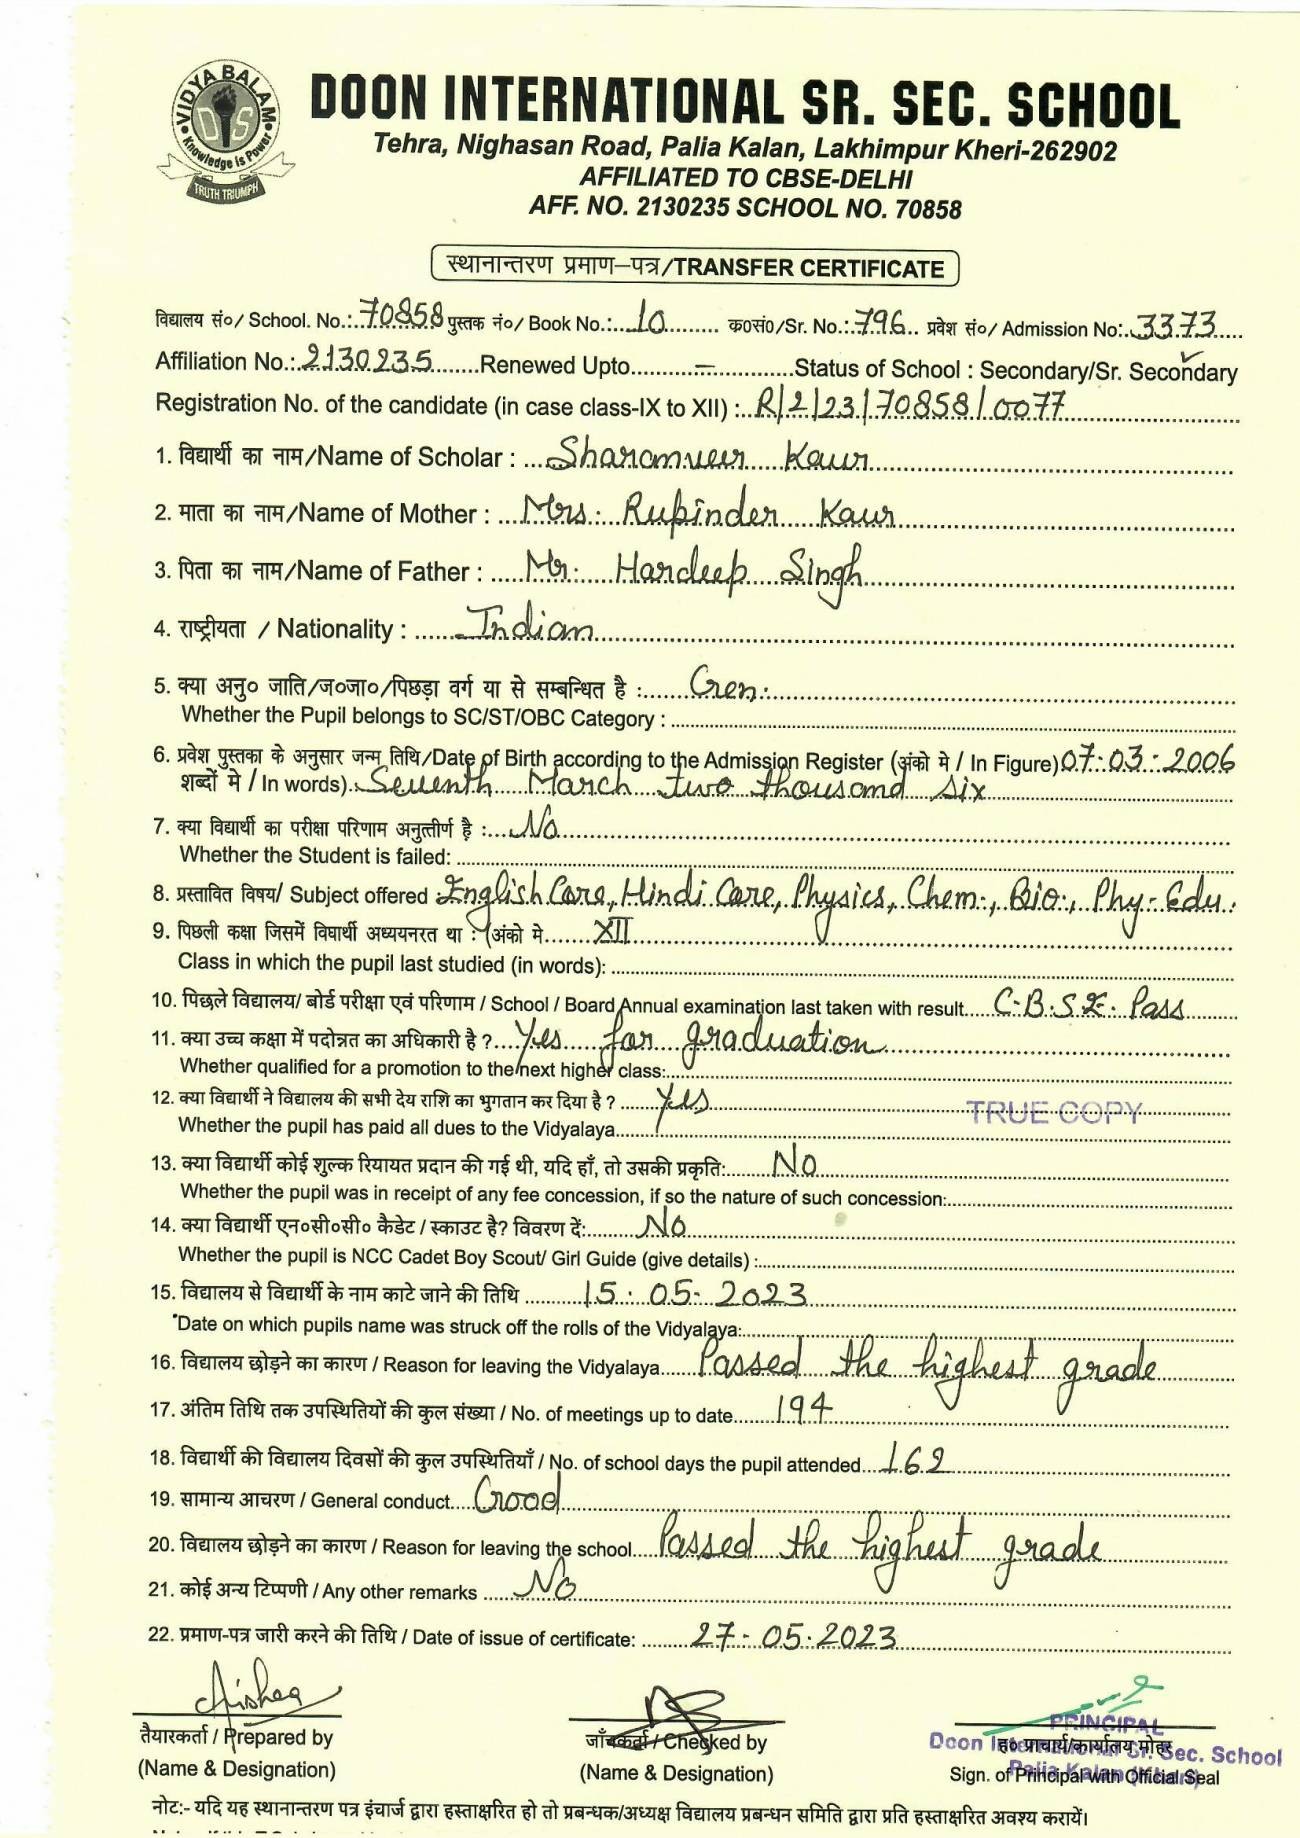 VIDYA BALAM
DS
Knowledge is Power
TRUTH TRIUMPH
DOON INTERNATIONAL SR. SEC. SCHOOL
Tehra, Nighasan Road, Palia Kalan, Lakhimpur Kheri-262902
AFFILIATED TO CBSE-DELHI
AFF. NO. 2130235 SCHOOL NO. 70858
स्थानान्तरण प्रमाण–पत्र/TRANSFER CERTIFICATE
विद्यालय सं०/ School. No.: 70858 पुस्तक नं०/ Book No.: 10 क०सं०/Sr. No.: 796 प्रवेश सं०/ Admission No: 3373
Affiliation No.: 2130235 Renewed Upto – Status of School : Secondary/Sr. Secondary ✓
Registration No. of the candidate (in case class-IX to XII) : R/2/23/70858/0077
1. विद्यार्थी का नाम/Name of Scholar : Sharamveer Kaur
2. माता का नाम/Name of Mother : Mrs. Rupinder Kaur
3. पिता का नाम/Name of Father : Mr. Hardeep Singh
4. राष्ट्रीयता / Nationality : Indian
5. क्या अनु० जाति/ज०जा०/पिछड़ा वर्ग या से सम्बन्धित है : Gen.
Whether the Pupil belongs to SC/ST/OBC Category :
6. प्रवेश पुस्तका के अनुसार जन्म तिथि/Date of Birth according to the Admission Register (अंको मे / In Figure) 07-03-2006
शब्दों मे / In words). Seventh March two thousand six
7. क्या विद्यार्थी का परीक्षा परिणाम अनुत्तीर्ण है : No
Whether the Student is failed:
8. प्रस्तावित विषय/ Subject offered : English Core, Hindi Core, Physics, Chem., Bio., Phy-Edu.
9. पिछली कक्षा जिसमें विद्यार्थी अध्ययनरत था : (अंको मे XII
Class in which the pupil last studied (in words):
10. पिछले विद्यालय/ बोर्ड परीक्षा एवं परिणाम / School / Board Annual examination last taken with result C.B.S.E. Pass
11. क्या उच्च कक्षा में पदोन्नत का अधिकारी है ? Yes for graduation
Whether qualified for a promotion to the next higher class:
12. क्या विद्यार्थी ने विद्यालय की सभी देय राशि का भुगतान कर दिया है ? Yes
TRUE COPY
Whether the pupil has paid all dues to the Vidyalaya
13. क्या विद्यार्थी कोई शुल्क रियायत प्रदान की गई थी, यदि हाँ, तो उसकी प्रकृति: No
Whether the pupil was in receipt of any fee concession, if so the nature of such concession:
14. क्या विद्यार्थी एन०सी०सी० कैडेट / स्काउट है? विवरण दें: No
Whether the pupil is NCC Cadet Boy Scout/ Girl Guide (give details) :
15. विद्यालय से विद्यार्थी के नाम काटे जाने की तिथि 15-05-2023
Date on which pupils name was struck off the rolls of the Vidyalaya:
16. विद्यालय छोड़ने का कारण / Reason for leaving the Vidyalaya Passed the highest grade
17. अंतिम तिथि तक उपस्थितियों की कुल संख्या / No. of meetings up to date 194
18. विद्यार्थी की विद्यालय दिवसों की कुल उपस्थितियाँ / No. of school days the pupil attended 162
19. सामान्य आचरण / General conduct Good
20. विद्यालय छोड़ने का कारण / Reason for leaving the school Passed the highest grade
21. कोई अन्य टिप्पणी / Any other remarks No
22. प्रमाण-पत्र जारी करने की तिथि / Date of issue of certificate: 27-05-2023
तैयारकर्ता / Prepared by
(Name & Designation)
जाँचकर्ता / Checked by
(Name & Designation)
PRINCIPAL
Doon International Sr. Sec. School
Palia Kalan (Kheri)
ह० प्राचार्य/कार्यालय मोहर
Sign. of Principal with Official Seal
नोट:- यदि यह स्थानान्तरण पत्र इंचार्ज द्वारा हस्ताक्षरित हो तो प्रबन्धक/अध्यक्ष विद्यालय प्रबन्धन समिति द्वारा प्रति हस्ताक्षरित अवश्य करायें।